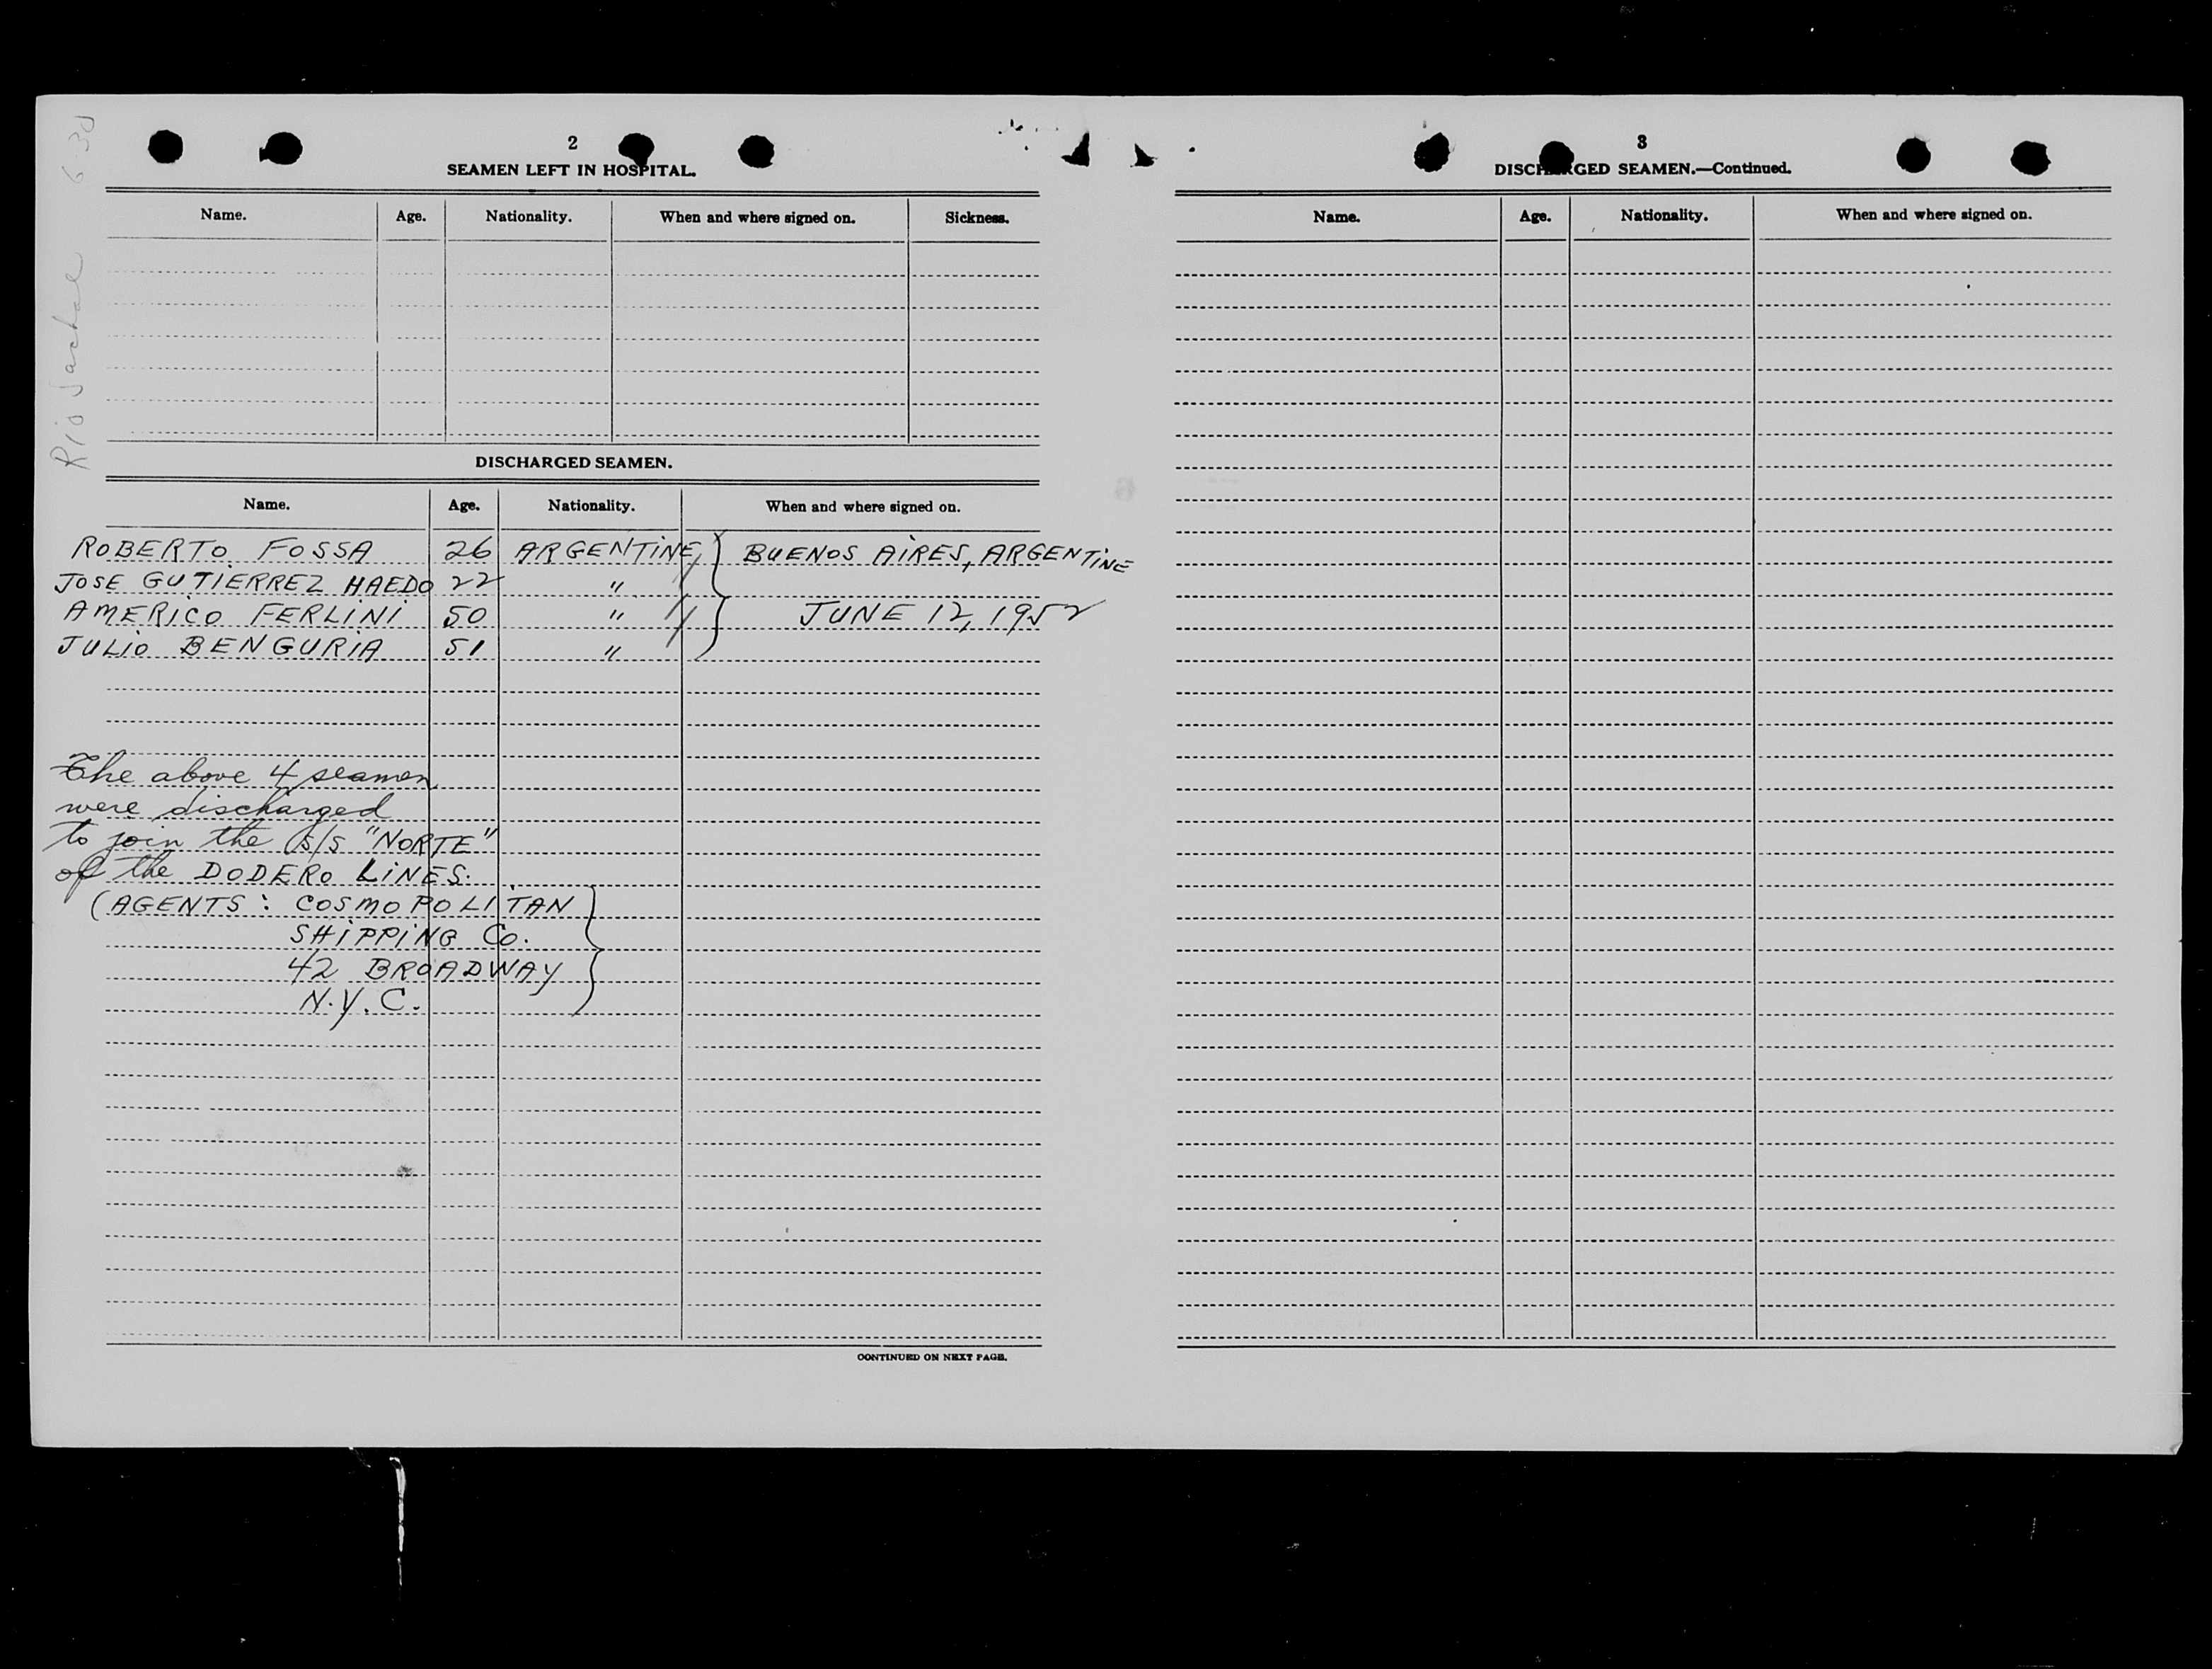 Rio Jachal 6-30
2
SEAMEN LEFT IN HOSPITAL.
Name. Age. Nationality. When and where signed on. Sickness.
DISCHARGED SEAMEN.
Name. Age. Nationality. When and where signed on.
ROBERTO FOSSA 26 ARGENTINE BUENOS AIRES, ARGENTINE
JOSE GUTIERREZ HAEDO 22 "
AMERICO FERLINI 50 " JUNE 12, 1952
JULIO BENGURIA 51 "
The above 4 seamen
were discharged
to join the S/S "NORTE"
of the DODERO LINES.
(AGENTS: COSMOPOLITAN
SHIPPING Co.
42 BROADWAY
N.Y.C.
CONTINUED ON NEXT PAGE.
3
DISCHARGED SEAMEN.—Continued.
Name. Age. Nationality. When and where signed on.